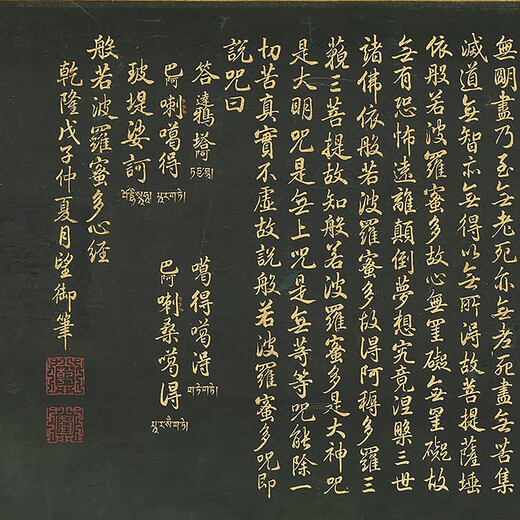 無明盡乃至无老死亦无老死盡无苦集
滅道无智亦无得以无所得故菩提薩埵
依般若波羅蜜多故心無罣礙无罣礙故
无有恐怖遠離顛倒夢想究竟涅槃三世
諸佛依般若波羅蜜多故得阿耨多羅三
藐三菩提故知般若波羅蜜多是大神咒
是大明咒是无上咒是无等等咒能除一
切苦真實不虛故說般若波羅蜜多咒即
說咒曰
答鴉塔阿 噶得噶得 ག་ཏེ་ག་ཏེ།
巴阿喇噶得 པཱ་ར་ག་ཏེ། 巴阿喇桑噶得 པཱ་ར་སཾ་ག་ཏེ།
玻提娑訶
般若波羅蜜多心經
乾隆戊子仲夏月望御筆